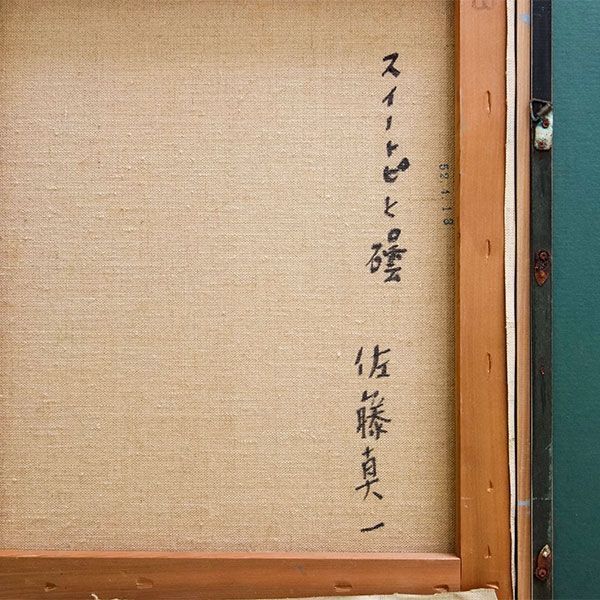 スイートピと罎
佐藤真一
52.4.18